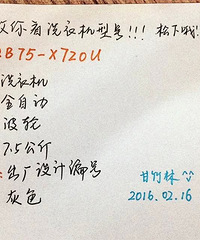 你有洗衣机型号!!! 松下哦!
B75-X720U
洗衣机
全自动
波轮
7.5公斤
出厂设计编号
灰色
甘竹林
2016.02.16